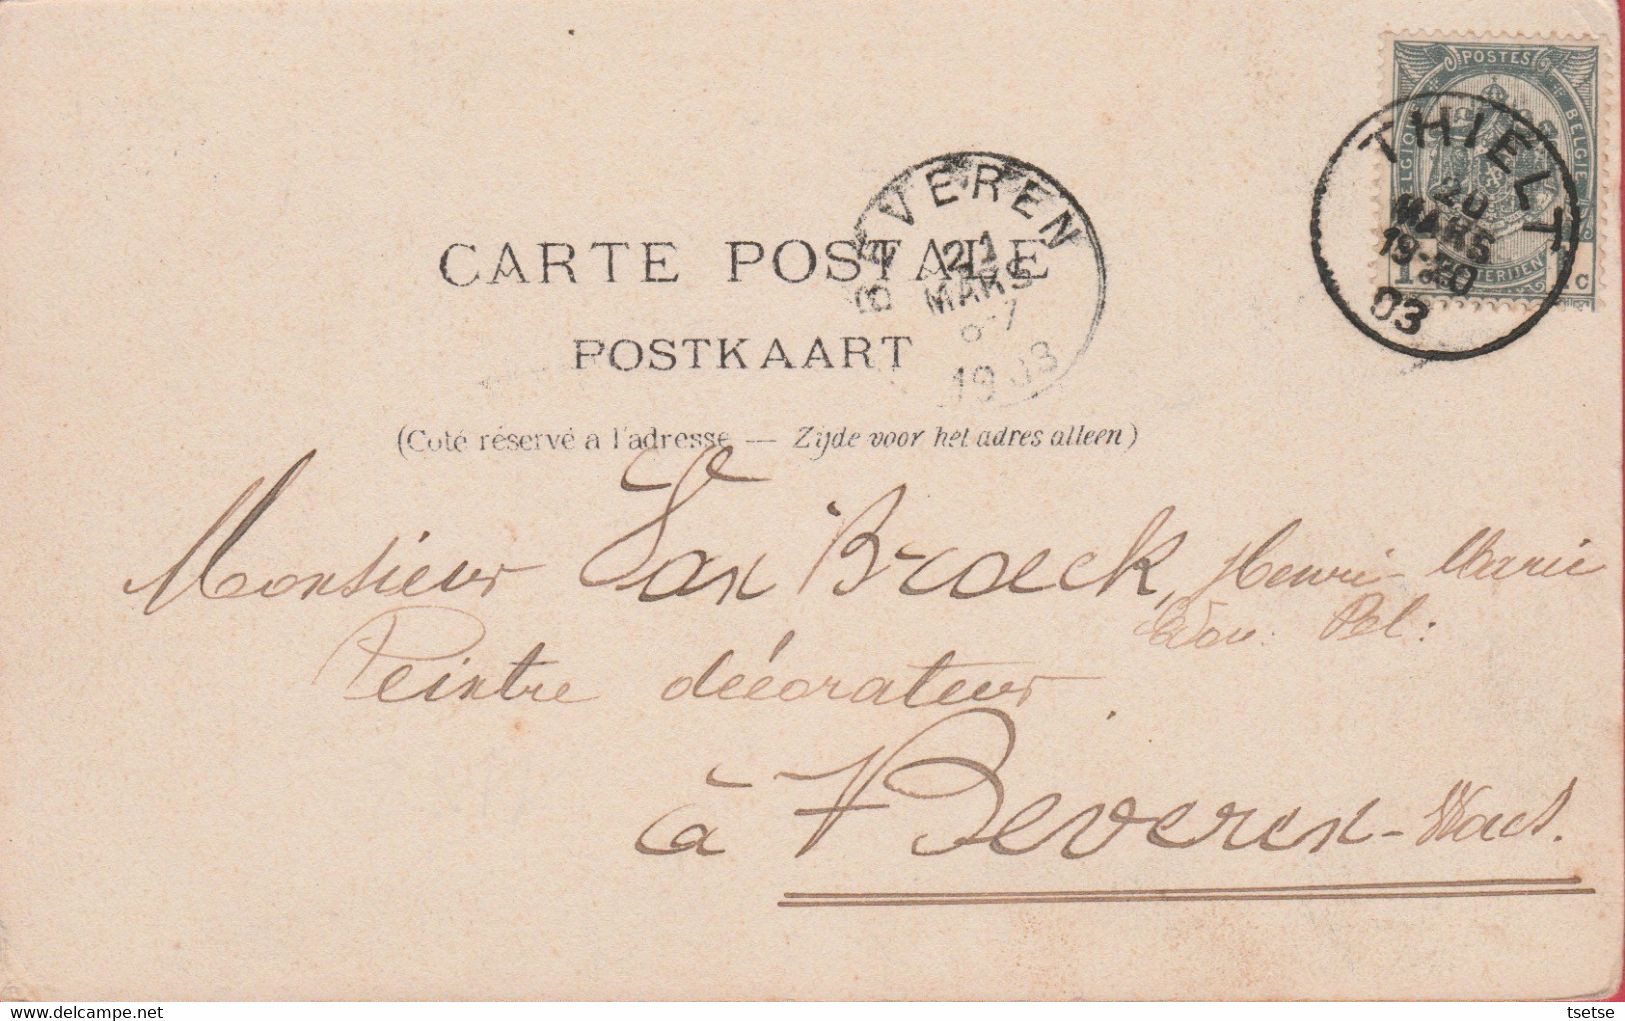 POSTES
BELGIQUE
BELGIË
THIELT
20
MARS
19-20
03
BEVEREN
21
MARS
1903
CARTE POSTALE
POSTKAART
(Coté réservé a l'adresse — Zijde voor het adres alleen)
Monsieur Van Broeck, Henri-Marie
Edou. Pol:
Peintre décorateur
à Beveren-Waes.
tsetse